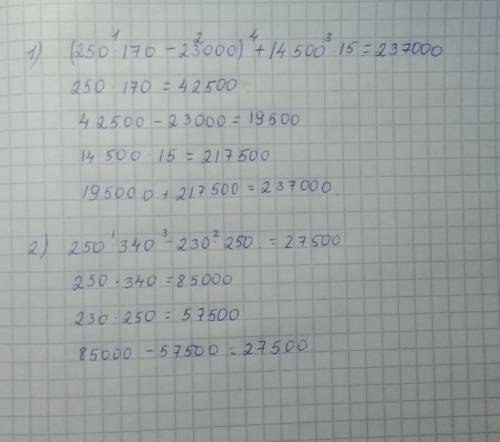 1) (250 ¹· 170 ²- 23000) ⁴+ 14 500 ³· 15 = 237000
250 · 170 = 42500
42500 - 23000 = 19500
14 500 · 15 = 217500
19500 0 + 217500 = 237000.
2) 250 ¹· 340 ³- 230 ²· 250 = 27500
250 · 340 = 85000
230 · 250 = 57500
85000 - 57500 = 27500